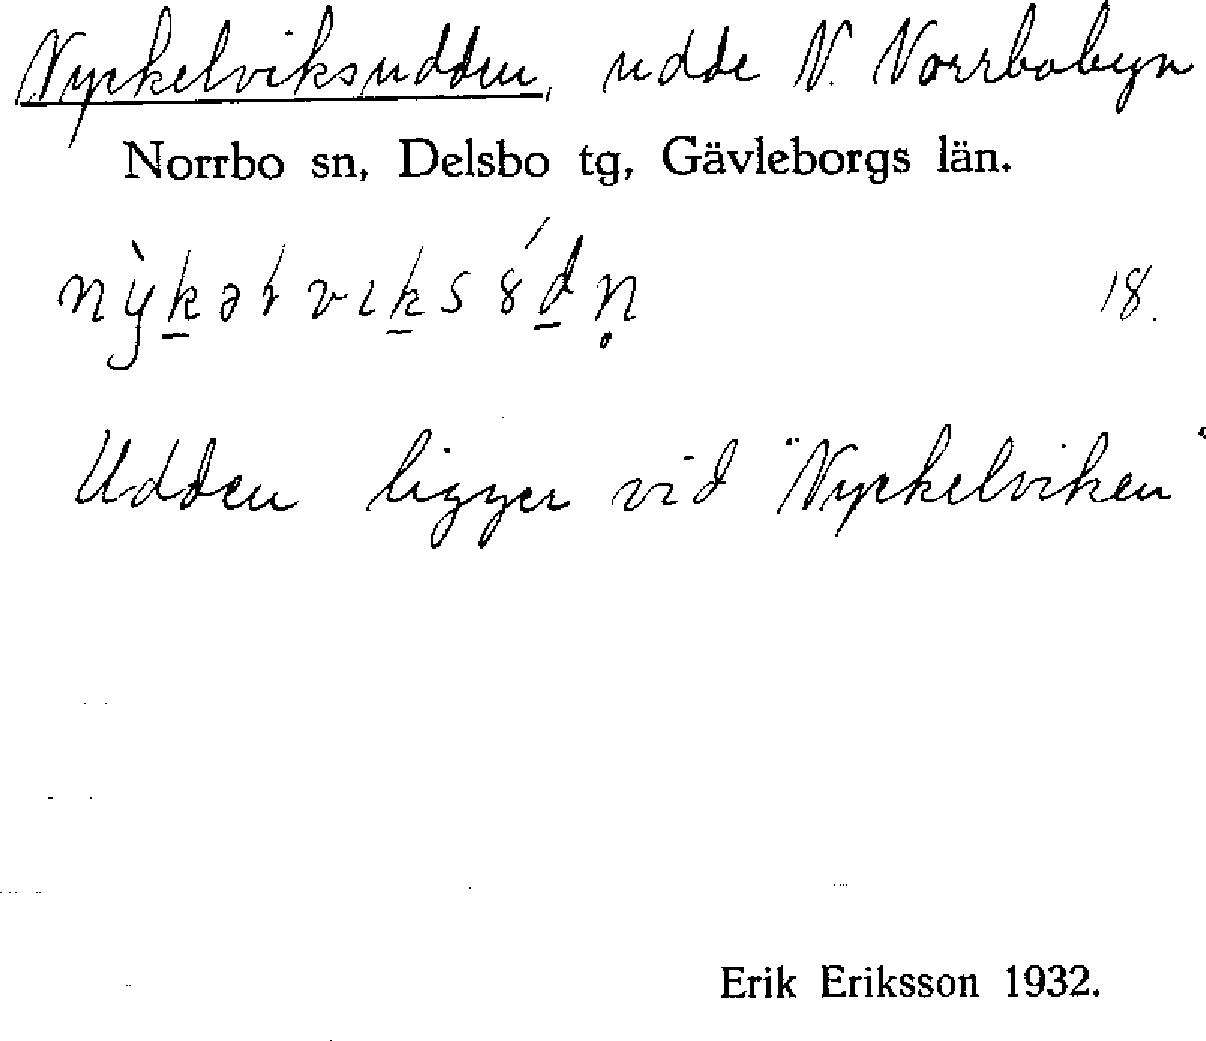 Nyckelviksudden, udde N. Norrbobyn
Norrbo sn, Delsbo tg, Gävleborgs län.
18.
Udden ligger vid "Nyckelviken"
Erik Eriksson 1932.